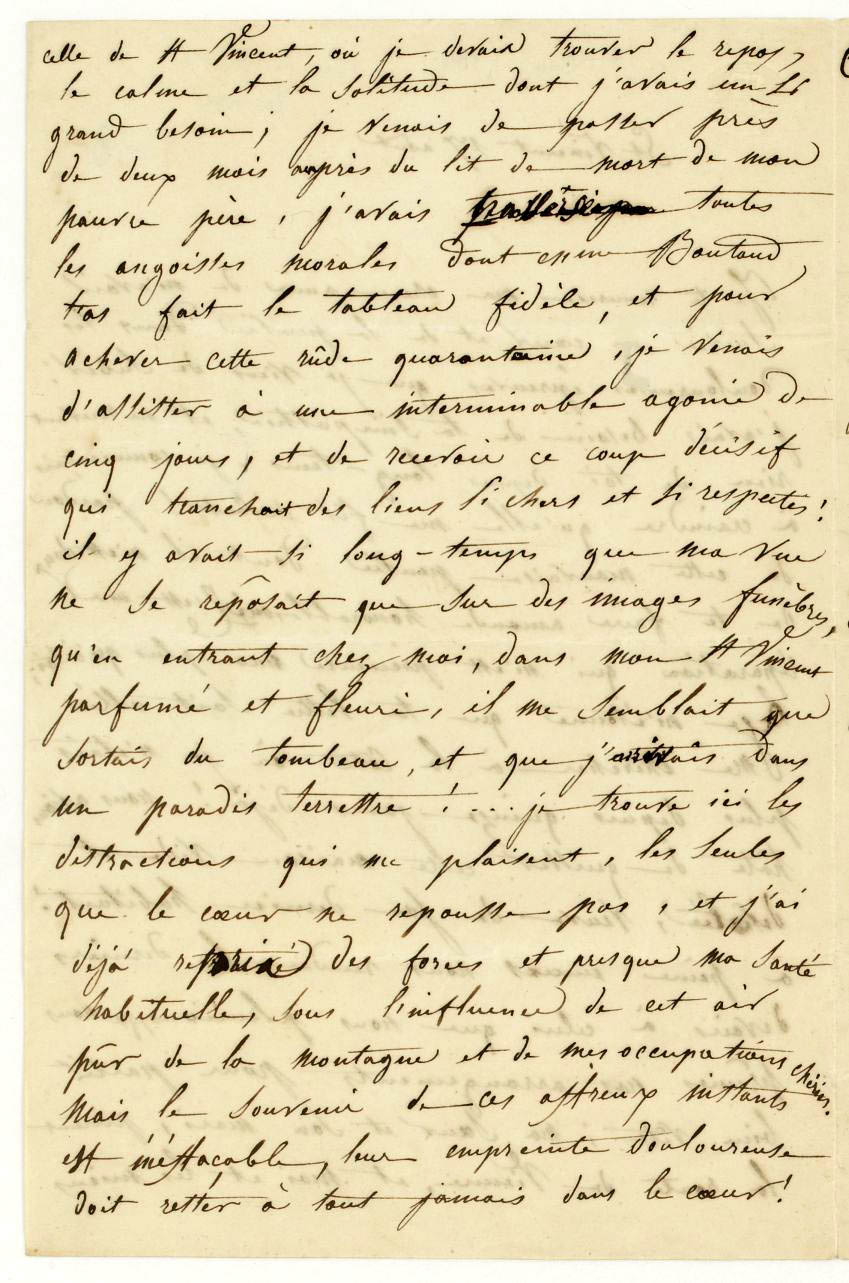 celle de St Vincent, où je devais trouver le repos,
le calme et la solitude dont j'avais un si
grand besoin; je venais de passer près
de deux mois auprès du lit de mort de mon
pauvre père, j'avais traversé toutes
les angoisses morales dont Mme Boutaud
t'as fait le tableau fidèle, et pour
achever cette rûde quarantaine, je venais
d'assister à une interminable agonie de
cinq jours, et de recevoir ce coup décisif
qui tranchait des liens si chers et si respectés!
il y avait si long-temps que ma vue
ne se repôsait que sur des images funèbres,
qu'en entrant chez moi, dans mon St Vincent
parfumé et fleuri, il me semblait que
sortais du tombeau, et que j'arrivais dans
un paradis terrestre!... je trouve ici les
distractions qui me plaisent, les seules
que le cœur ne repousse pas, et j'ai
déjà repris des forces et presque ma santé
habituelle, sous l'influence de cet air
pûr de la montagne et de mes occupations chéries.
Mais le souvenir de ces affreux instants
est inéffacable, leur empreinte douloureuse
doit rester à tout jamais dans le cœur!